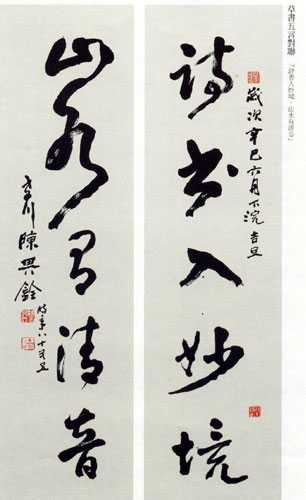 草書五言對聯 「詩書入妙境,山水有清音」
歲次辛巳六月下浣吉旦
詩書入妙境
山水有清音
陳興銓
時年八十